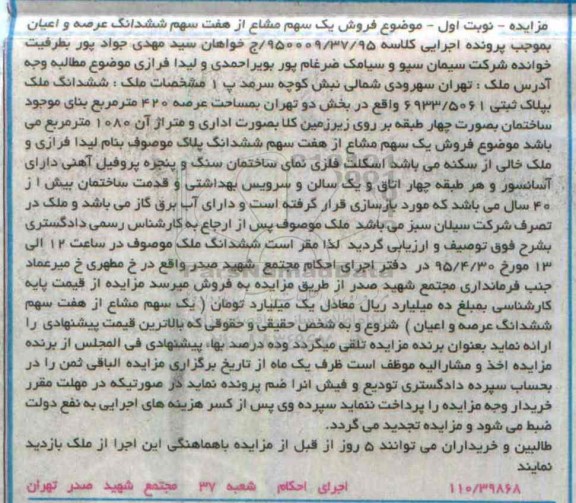 مزایده - نوبت اول - موضوع فروش یک سهم مشاع از هفت سهم ششدانگ عرصه و اعیان
بموجب پرونده اجرایی کلاسه ۹۵۰۰۰۹/۳۷/۹۵/ج خواهان سید مهدی جواد پور بطرفیت
خوانده شرکت سیمان سبو و سیامک ضرغام پور بویراحمدی و لیدا فرازی موضوع مطالبه وجه
آدرس ملک : تهران سهرودی شمالی نبش کوچه سرمد پ ۱ مشخصات ملک : ششدانگ ملک
بپلاک ثبتی ۶۹۳۳/۵۰۶۱ واقع در بخش دو تهران بمساحت عرصه ۴۲۰ مترمربع بنای موجود
ساختمان بصورت چهار طبقه بر روی زیرزمین کلا بصورت اداری و متراژ آن ۱۰۸۰ مترمربع می
باشد موضوع فروش یک سهم مشاع از هفت سهم ششدانگ پلاک موصوف بنام لیدا فرازی و
ملک خالی از سکنه می باشد اسکلت فلزی نمای ساختمان سنگ و پنجره پروفیل آهنی دارای
آسانسور و هر طبقه چهار اتاق و یک سالن و سرویس بهداشتی و قدمت ساختمان بیش از
۴۰ سال می باشد که مورد بازسازی قرار گرفته است و دارای آب برق گاز می باشد و ملک در
تصرف شرکت سیلان سبز می باشد ملک موصوف پس از ارجاع به کارشناس رسمی دادگستری
بشرح فوق توصیف و ارزیابی گردید لذا مقر است ششدانگ ملک موصوف در ساعت ۱۲ الی
۱۳ مورخ ۹۵/۴/۳۰ در دفتر اجرای احکام مجتمع شهید صدر واقع در خ مطهری خ میرعماد
جنب فرمانداری مجتمع شهید صدر از طریق مزایده به فروش میرسد مزایده از قیمت پایه
کارشناسی بمبلغ ده میلیارد ریال معادل یک میلیارد تومان ( یک سهم مشاع از هفت سهم
ششدانگ عرصه و اعیان ) شروع و به شخص حقیقی و حقوقی که بالاترین قیمت پیشنهادی را
ارائه نماید بعنوان برنده مزایده تلقی میگردد وده درصد بها، پیشنهادی فی المجلس از برنده
مزایده اخذ و مشارالیه موظف است ظرف یک ماه از تاریخ برگزاری مزایده الباقی ثمن را در
بحساب سپرده دادگستری تودیع و فیش آنرا ضم پرونده نماید در صورتیکه در مهلت مقرر
خریدار وجه مزایده را پرداخت ننماید سپرده وی پس از کسر هزینه های اجرایی به نفع دولت
ضبط می شود و مزایده تجدید می گردد.
طالبین و خریداران می توانند ۵ روز از قبل از مزایده باهماهنگی این اجرا از ملک بازدید
نمایند
۱۱۰/۳۹۸۶۸ اجرای احکام شعبه ۳۷ مجتمع شهید صدر تهران